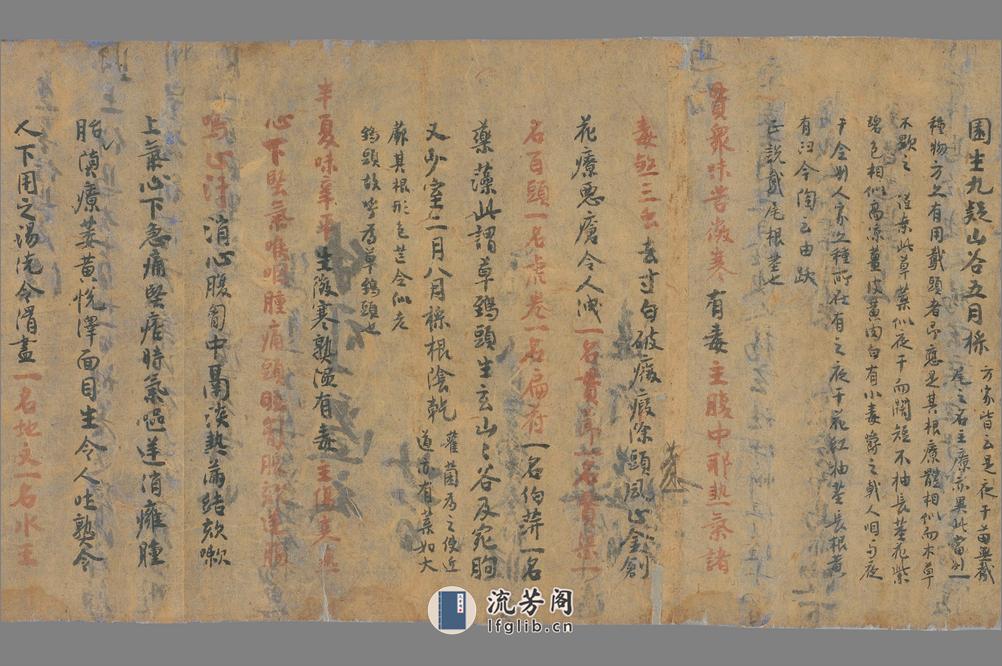 園生九疑山谷五月採
方家皆云是夜干苗無鳶
尾之名主療亦異此當別一
種物方又有用鳶頭者即應是其根療體相似而本草
不題之 謹案此草葉似夜干而闊短不抽長莖花紫
碧色相似高涼薑皮黃肉白有小毒嚼之戟人咽與夜
干全別人家亦種所在有之夜干花紅抽莖長根黃
有臼今陶云由跋
正說鳶尾根莖也
貫衆味苦微寒有毒主腹中邪熱氣諸
毒煞三虫去寸白破癥瘕除頭風止金創
花療惡瘡令人洩一名貫節一名貫渠一
名百頭一名虎卷一名扁符一名伯萍一名
藥藻此謂草鵄頭生玄山山谷及宛朐
又少室二月八月採根陰乾
雚菌為之使近
道亦有葉如大
蕨其根形色芒全似老
鵄頭故呼為草鵄頭也
半夏味辛平生微寒熟溫有毒主傷寒熱
心下堅氣喉咽腫痛頭眩胸脹欬逆腸
鳴止汗消心腹胸中鬲淡熱滿結欬嗽
上氣心下急痛堅痞時氣嘔逆消癰腫
胎墮療萎黃悅澤面目生令人吐熟令
人下用之湯洗令滑盡一名地文一名水玉
流芳閣
lfglib.cn